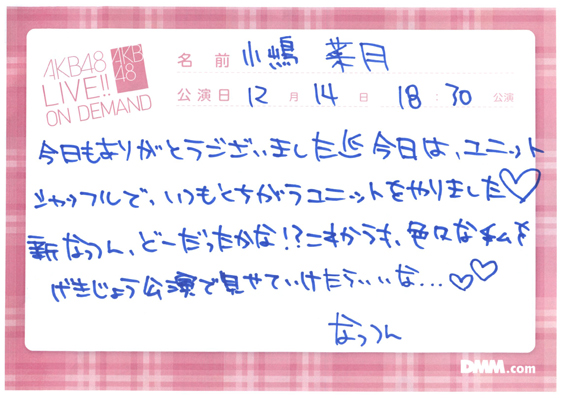 AKB48
LIVE!!
ON DEMAND
AKB
48
名前 小嶋 菜月
公演日 12月14日 18:30 公演
今日もありがとうございました 今日は、ユニット
シャッフルで、いつもとちがうユニットをやりました♡
新なっつん、どーだったかな!?これからも、色々な私を
げきじょう公演で見せていけたらいいな...♡♡
なっつん
DMM.com